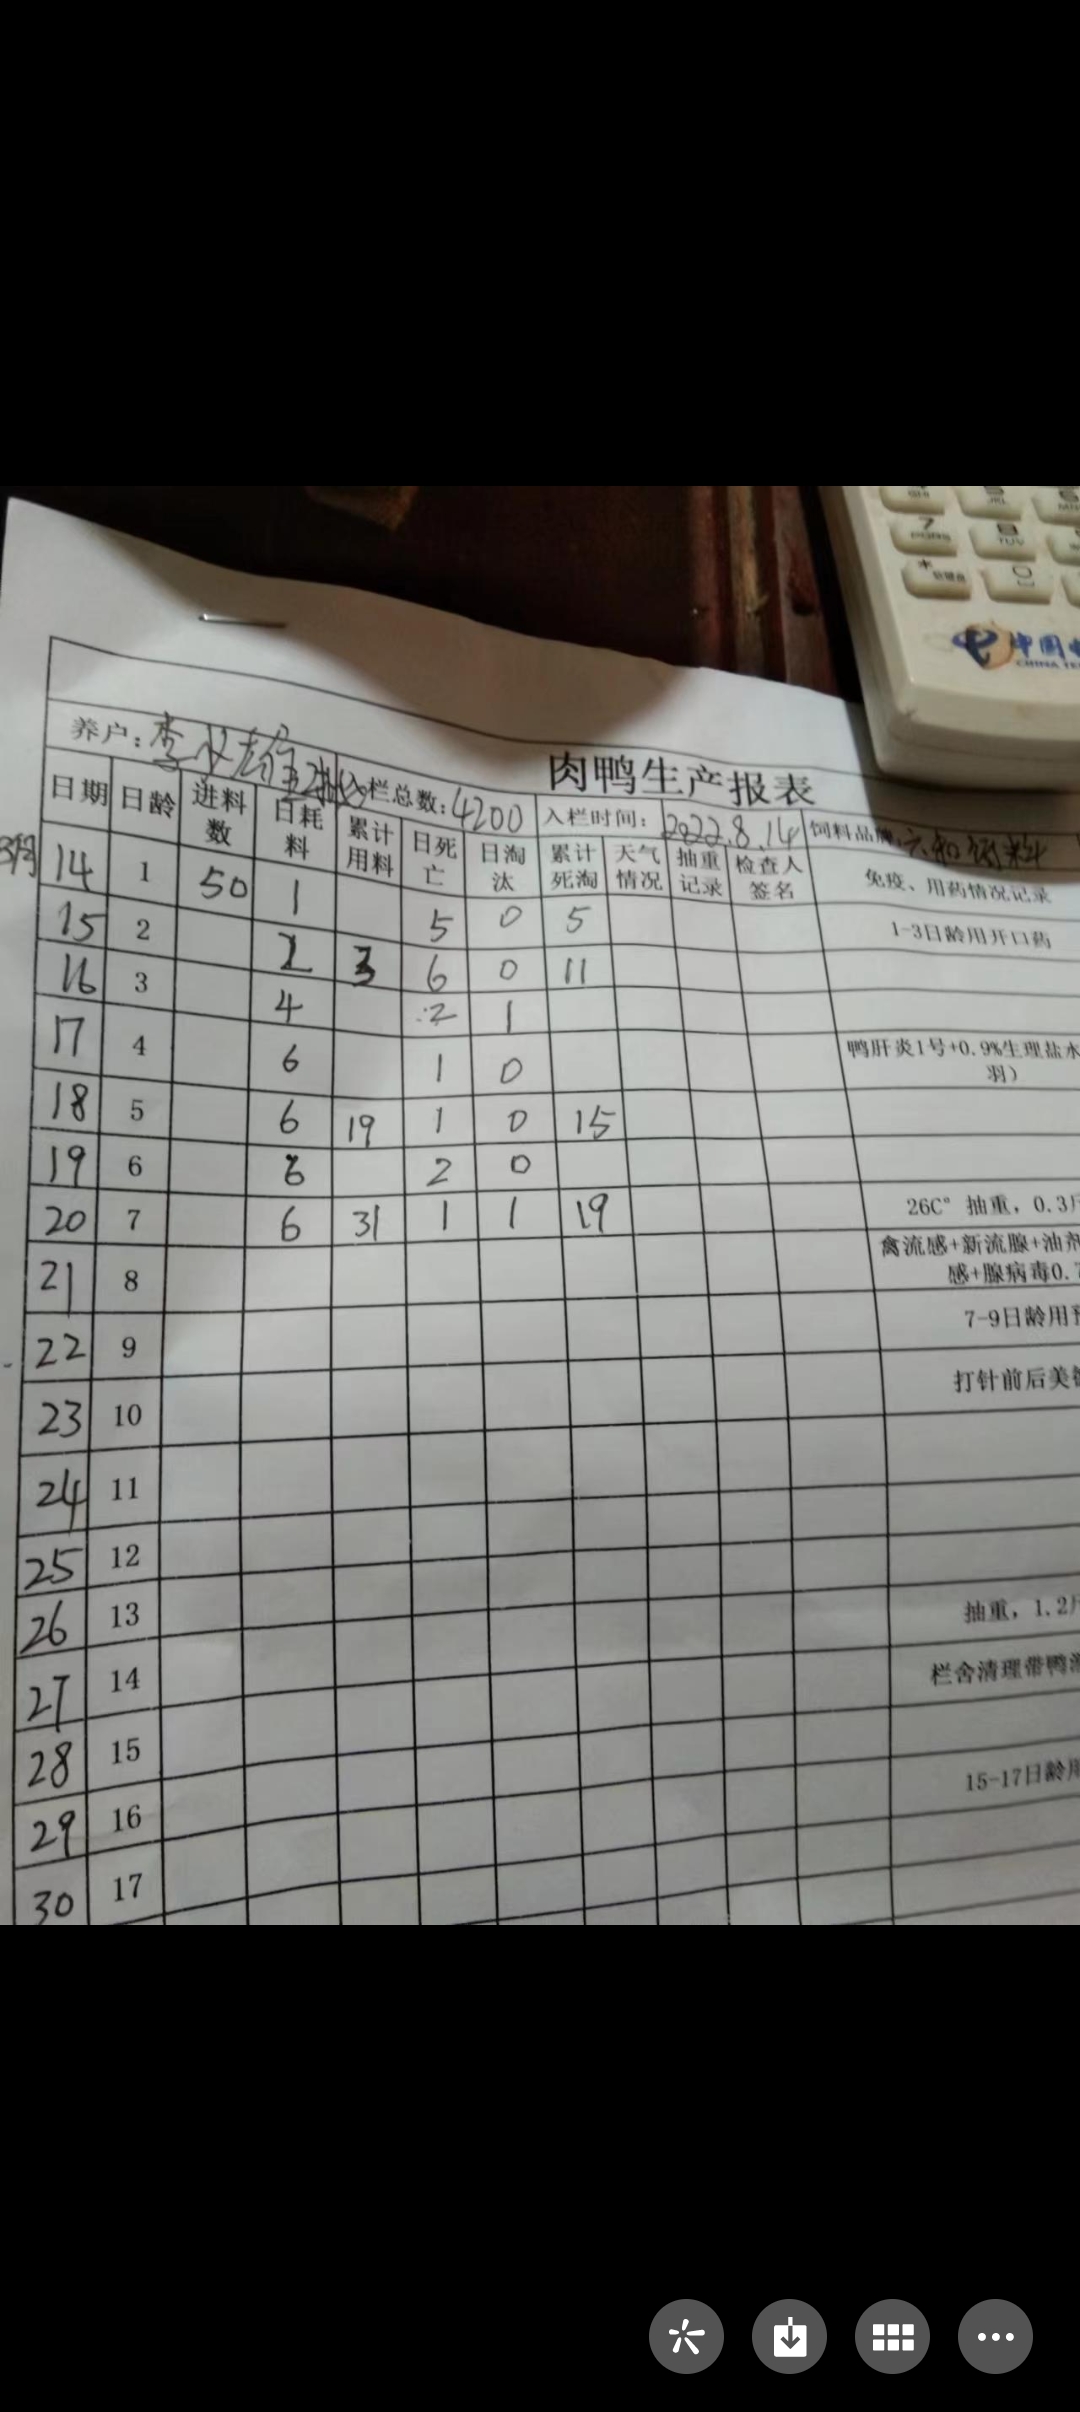 7
PQRS
8
TUV
*
0
中国电
CHINA TE
肉鸭生产报表
养户: 李 入栏总数: 4200 入栏时间: 2022.8.14 饲料品牌: 六和饲料
日期 日龄 进料数 日耗料 累计用料 日死亡 日淘汰 累计死淘 天气情况 抽重记录 检查人签名 免疫、用药情况记录
14 1 50 1 5 0 5 1-3日龄用开口药
15 2 2 3 6 0 11
16 3 4 2 1
17 4 6 1 0 鸭肝炎1号+0.9%生理盐水
羽）
18 5 6 19 1 0 15
19 6 6 2 0
20 7 6 31 1 1 19 26C° 抽重，0.3斤
21 8 禽流感+新流腺+油剂
感+腺病毒0.7
22 9 7-9日龄用预
23 10 打针前后美
24 11
25 12
26 13 抽重，1.2斤
27 14 栏舍清理带鸭消
28 15
29 16 15-17日龄用
30 17